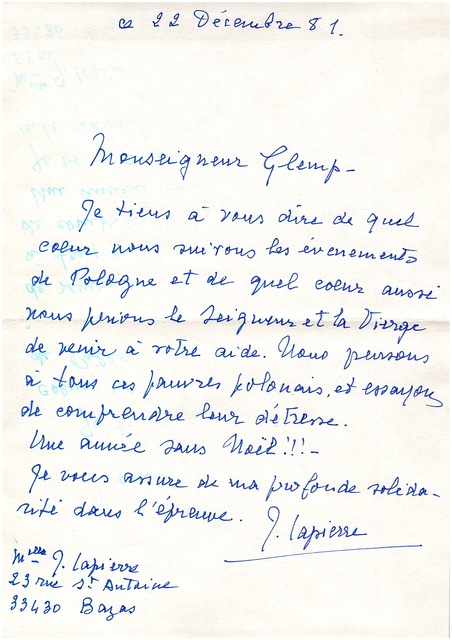 ce 22 Décembre 81.
Monseigneur Glemp -
Je tiens à vous dire de quel
coeur nous suivons les évenements
de Pologne et de quel coeur aussi
nous prions le Seigneur et la Vierge
de venir à votre aide. Nous pensons
à tous ces pauvres polonais, et essayons
de comprendre leur détresse.
Une année sans Noël!!! -
Je vous assure de ma profonde solida-
rité dans l'épreuve. J. Lapierre
J. Lapierre
23 rue St Antoine
33430 Bazas